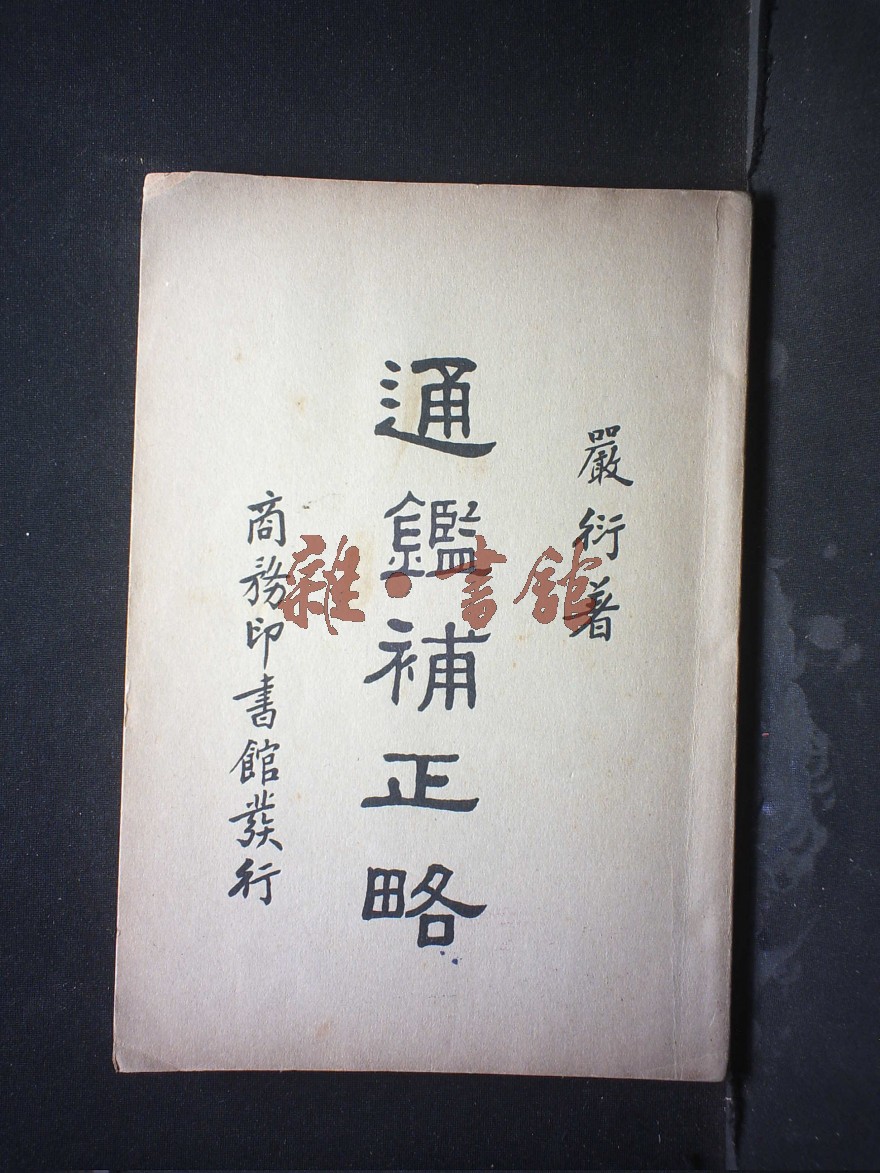 嚴衍著
通鑑補正略
商務印書館發行
雜·書館